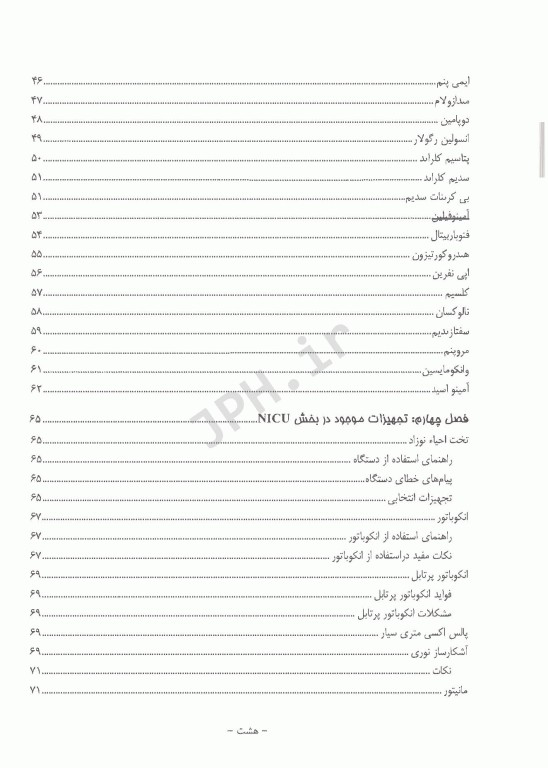 ایمی پنم ۴۶
میدازولام ۴۷
دوپامین ۴۸
انسولین رگولار ۴۹
پتاسیم کلراید ۵۰
سدیم کلراید ۵۱
بی کربنات سدیم ۵۱
آمینوفیلین ۵۳
فنوباربیتال ۵۴
هیدروکورتیزون ۵۵
اپی نفرین ۵۶
کلسیم ۵۷
نالوکسان ۵۸
سفتازیدیم ۵۹
مروپنم ۶۰
وانکومایسین ۶۱
آمینو اسید ۶۲
فصل چهارم: تجهیزات موجود در بخش NICU ۶۵
تخت احیاء نوزاد ۶۵
راهنمای استفاده از دستگاه ۶۵
پیام‌های خطای دستگاه ۶۵
تجهیزات انتخابی ۶۵
انکوباتور ۶۷
راهنمای استفاده از انکوباتور ۶۷
نکات مفید دراستفاده از انکوباتور ۶۷
انکوباتور پرتابل ۶۹
فواید انکوباتور پرتابل ۶۹
مشکلات انکوباتور پرتابل ۶۹
پالس اکسی متری سیار ۶۹
آشکارساز نوری ۶۹
نکات ۷۱
مانیتور ۷۱
– هشت –
JPH.ir